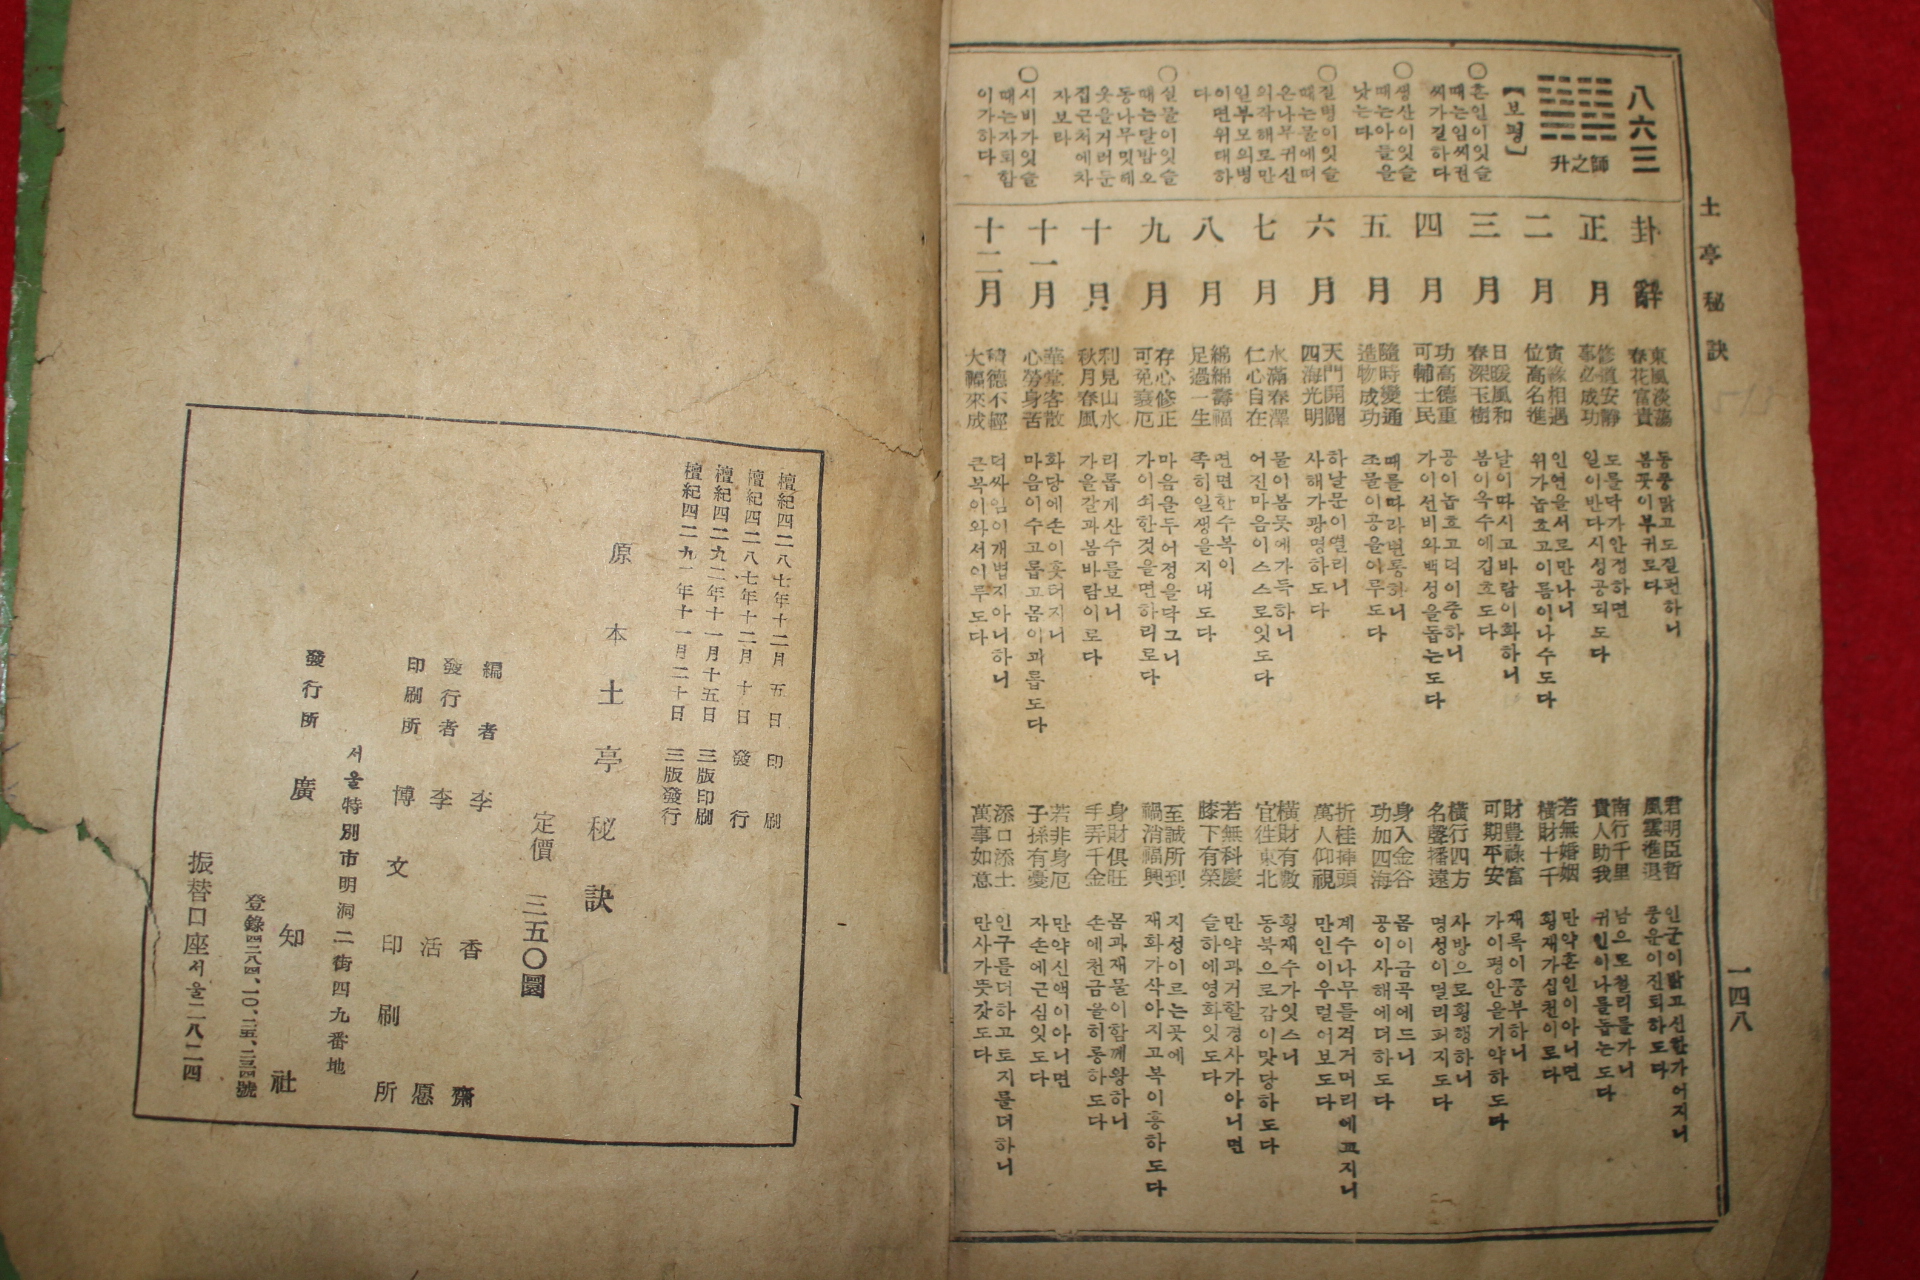 土亭秘訣
一四八
八六三
師之升
【보평】
○혼인이잇슬
때는임씨권
씨가길하다
○생산이잇슬
때는아들을
낫는다
○질병이잇슬
때는물에떠
온나무귀신
의작해로만
일부모의병
이면위태하
다
○실물이잇슬
때는달밤오
동나무밋헤
옷을거러둔
집근처에차
자보라
○시비가잇슬
때는자퇴함
이가하다
卦辭
東風淡蕩
春花富貴
동풍맑고도질편하니
봄꼿이부귀로다
君明臣哲
風雲進退
인군이밝고신한가어지니
풍운이진퇴하도다
正月
修道安靜
事必成功
도를닥가안정하면
일이반다시성공되도다
南行千里
貴人助我
남으로천리를가니
귀인이나를돕는도다
二月
寅緣相遇
位高名進
인연을서로만나니
위가놉흐고이름이나수도다
若無婚姻
橫財十千
만약혼인이아니면
횡재가십천이로다
三月
日暖風和
春深玉樹
날이따시고바람이화하니
봄이옥수에깁흐도다
財豊祿富
可期平安
재록이풍부하니
가이평안을기약하도다
四月
功高德重
可輔士民
공이놉흐고덕이중하니
가이선비와백성을돕는도다
橫行四方
名聲播遠
사방으로횡행하니
명성이멀리퍼지도다
五月
隨時變通
造物成功
때를따라변통하니
조물이공을이루도다
身入金谷
功加四海
몸이금곡에드니
공이사해에더하도다
六月
天門開闢
四海光明
하날문이열리니
사해가광명하도다
折桂揷頭
萬人仰視
계수나무를꺽거머리에꼬지니
만인이우럴어보도다
七月
水滿春澤
仁心自在
물이봄못에가득하니
어진마음이스스로잇도다
橫財有數
宜徃東北
횡재수가잇스니
동북으로감이맛당하도다
八月
綿綿壽福
足過一生
면면한수복이
족히일생을지내도다
若無科慶
膝下有榮
만약과거할경사가아니면
슬하에영화잇도다
九月
存心修正
可免衰厄
마음을두어정을닥그니
가이쇠한것을면하리로다
至誠所到
禍消福興
지성이르는곳에
재화가삭아지고복이흥하도다
十月
利見山水
秋月春風
리롭게산수를보니
가을갈과봄바람이로다
身財俱旺
手弄千金
몸과재물이함께왕하니
손에천금을히롱하도다
十一月
華堂客散
心勞身苦
화당에손이흣터지니
마음이수고롭고몸이괴롭도다
若非身厄
子孫有憂
만약신액이아니면
자손에근심잇도다
十二月
積德不輕
大福來成
덕싸임이개볍지아니하니
큰복이와서이루도다
添口添土
萬事如意
인구를더하고토지를더하니
만사가뜻갓도다
檀紀四二八七年十二月五日印刷
檀紀四二八七年十二月十日發行
檀紀四二九二年十一月十五日三版印刷
檀紀四二九一年十一月二十日三版發行
原本土亭秘訣
定價 三五〇圜
編者 李香齋
發行者 李活愿
印刷所 博文印刷所
서울特別市明洞二街四九番地
發行所 廣知社
登錄四二八四、一〇、二五、二三四號
振替口座서울二八二四